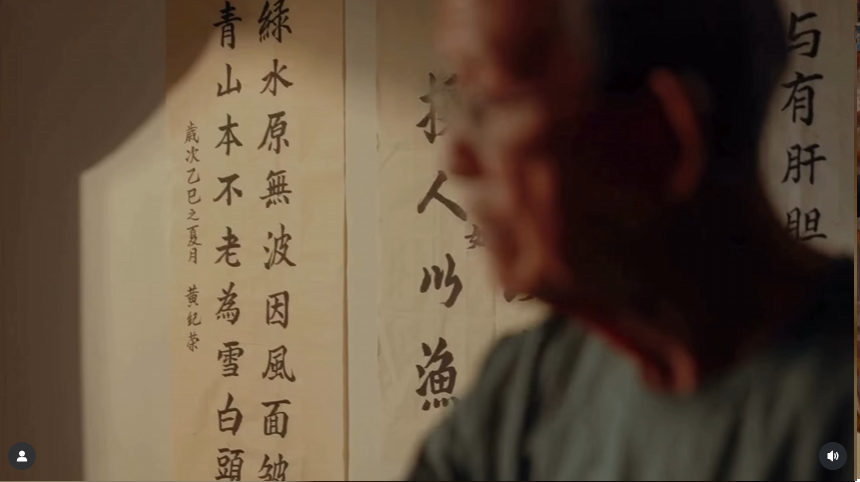 与有肝胆
人以漁
綠水原無波因風面皺
青山本不老為雪白頭
歲次乙巳之夏月 黃紀榮